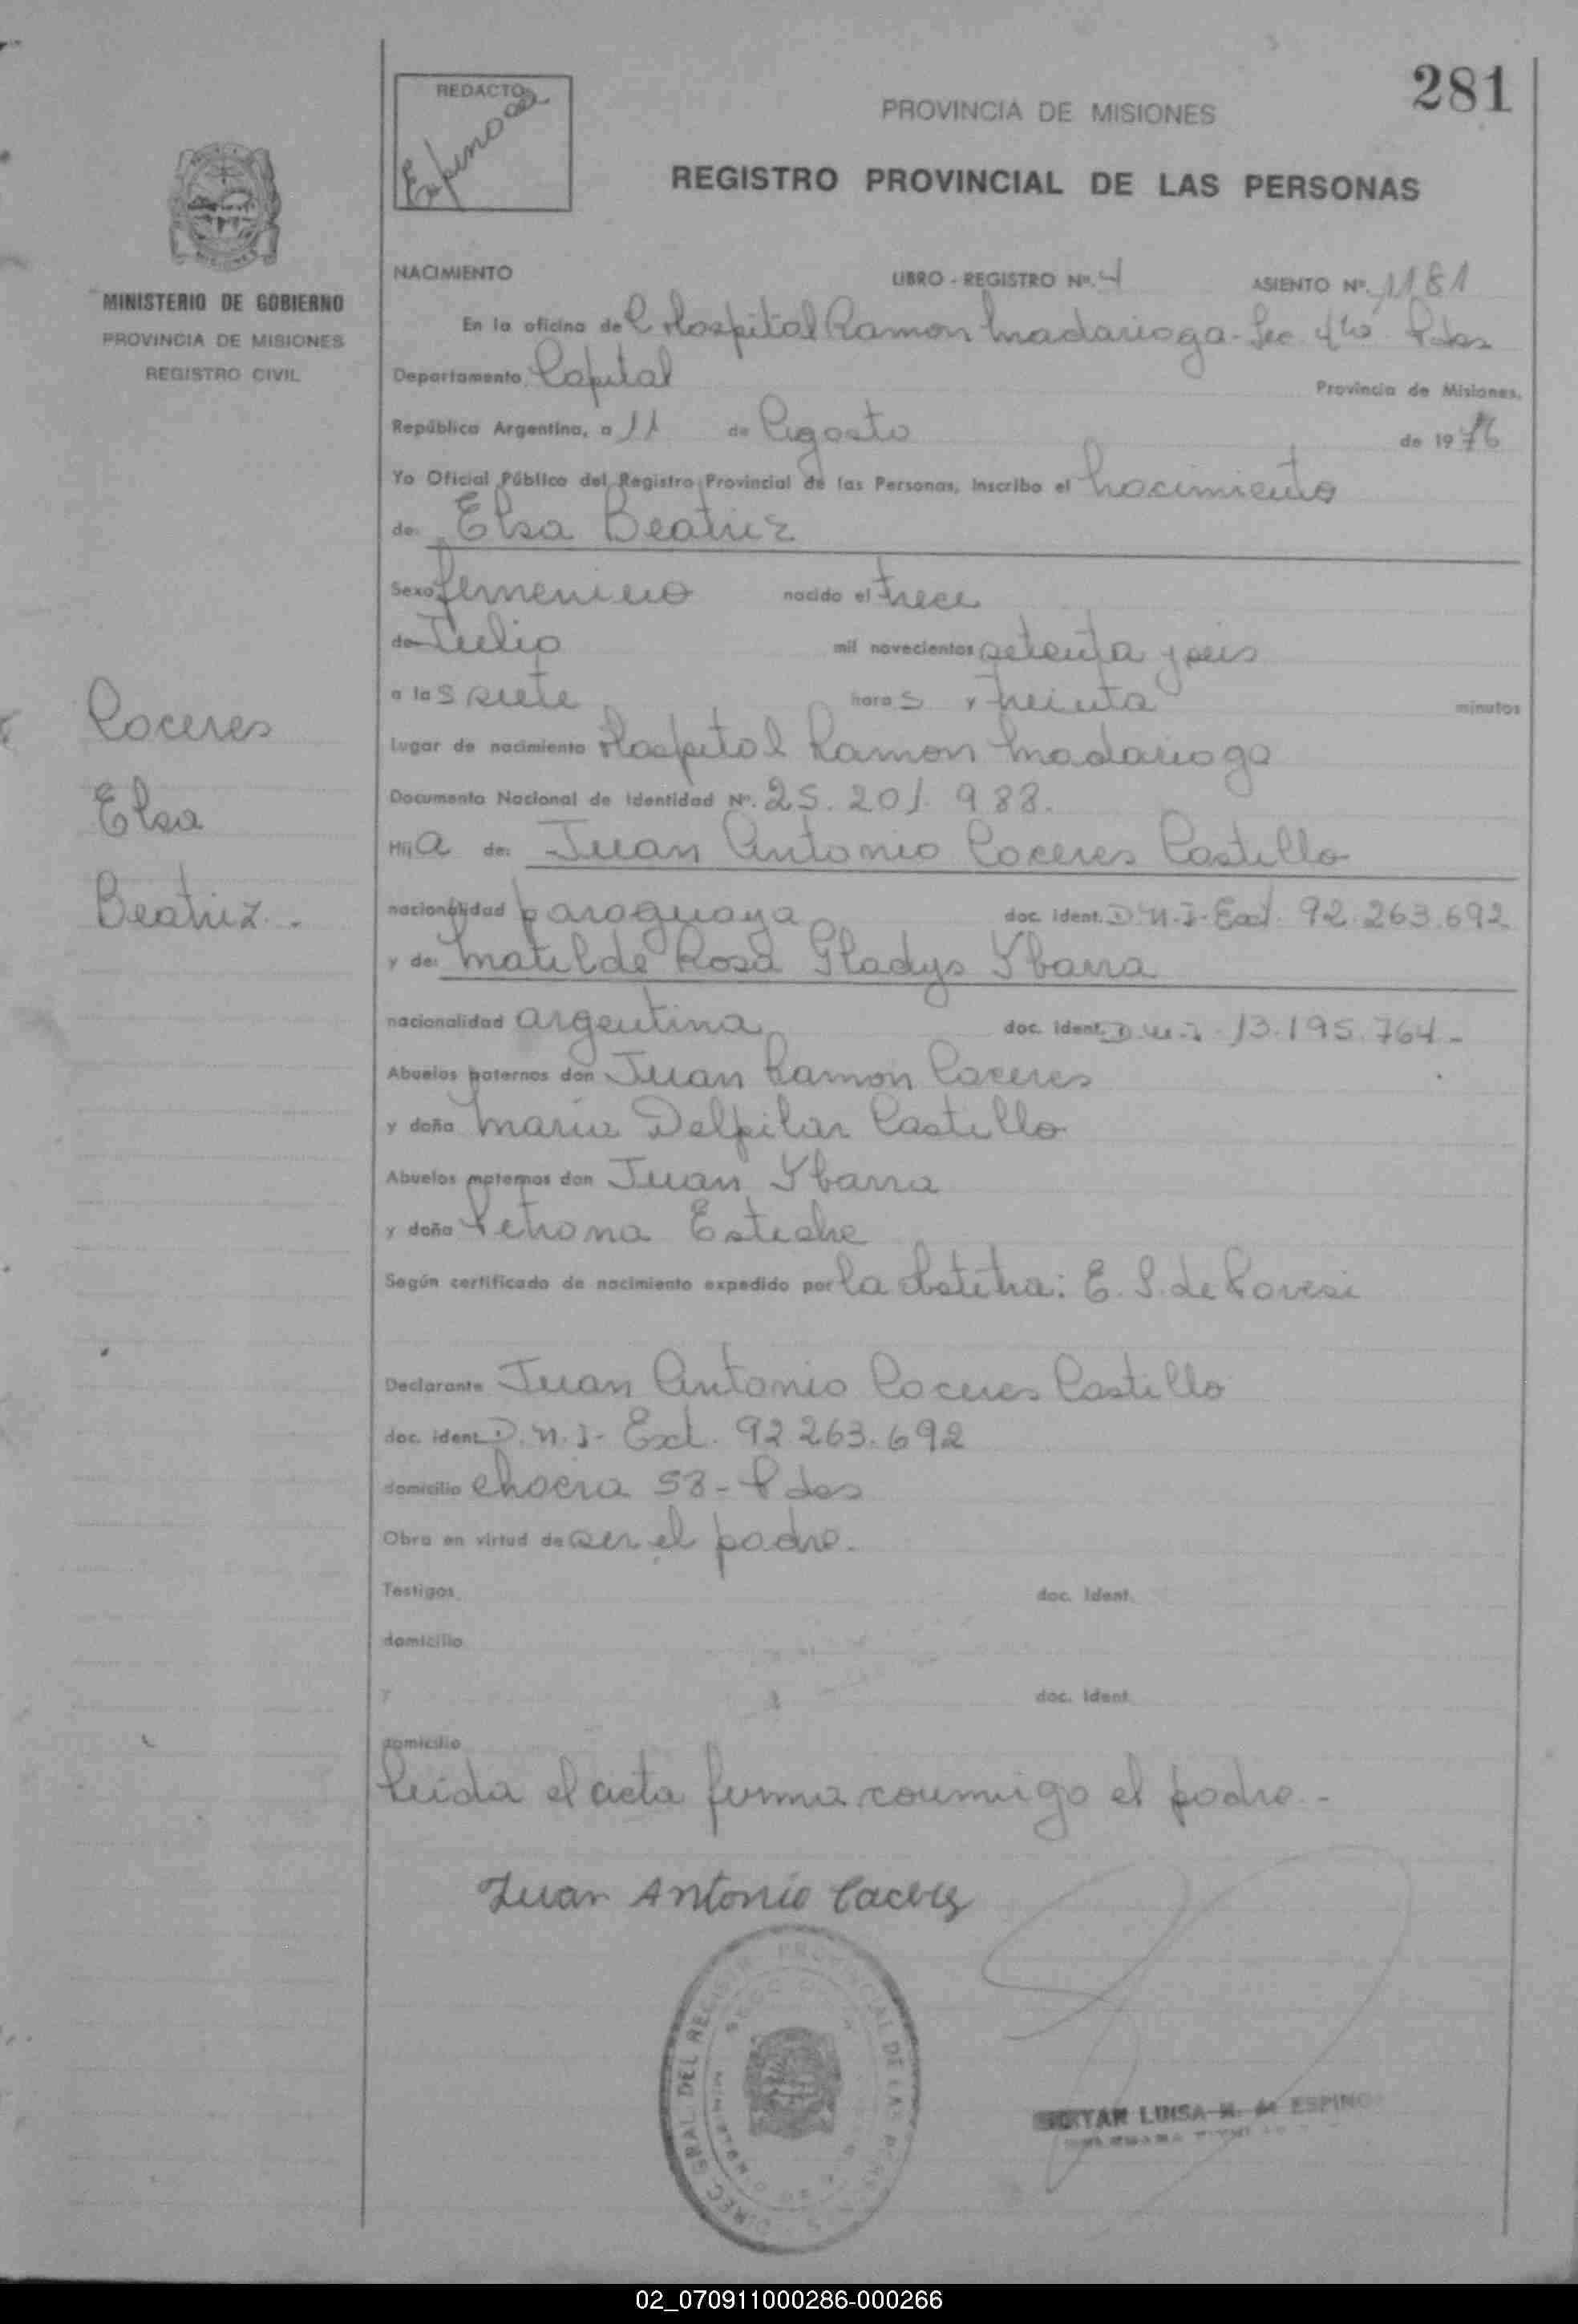 281
REDACTO
Espinosa
PROVINCIA DE MISIONES
REGISTRO PROVINCIAL DE LAS PERSONAS
MINISTERIO DE GOBIERNO
PROVINCIA DE MISIONES
REGISTRO CIVIL
NACIMIENTO LIBRO - REGISTRO Nº. 4 ASIENTO Nº. 1181
En la oficina de Hospital Ramon Madariaga - Sec. 4ta. Pdas
Departamento Capital Provincia de Misiones,
República Argentina, a 11 de Agosto de 1976
Yo Oficial Público del Registro Provincial de las Personas, inscribo el nacimiento
de: Elsa Beatriz
Sexo femenino nacido el trece
de Julio mil novecientos setenta y seis
a las siete horas y treinta minutos
Lugar de nacimiento Hospital Ramon Madariaga
Documento Nacional de Identidad Nº. 25.201.988.
Hija de: Juan Antonio Caceres Castillo
nacionalidad paraguaya doc. ident. D.N.I. Ext. 92.263.692
y de: Matilde Rosa Gladys Ybarra
nacionalidad argentina doc. ident. D.N.I. 13.195.764-
Abuelos paternos don Juan Ramon Caceres
y doña Maria Delpilar Castillo
Abuelos maternos don Juan Ybarra
y doña Petrona Esteche
Según certificado de nacimiento expedido por la obstetra: E. S. de Pavesi
Declarante Juan Antonio Caceres Castillo
doc. ident. D.N.I- Ext. 92.263.692
domicilio chacra 53 - Pdas
Obra en virtud de ser el padre.
Testigos doc. ident.
domicilio
y doc. ident.
domicilio
Leida el acta firma conmigo el padre.-
Caceres
Elsa
Beatriz.-
Juan Antonio Caceres
DIREC. GRAL DEL REGISTRO PROVINCIAL DE LAS PERSONAS
LUISA M. de ESPINO
02_070911000286-000266